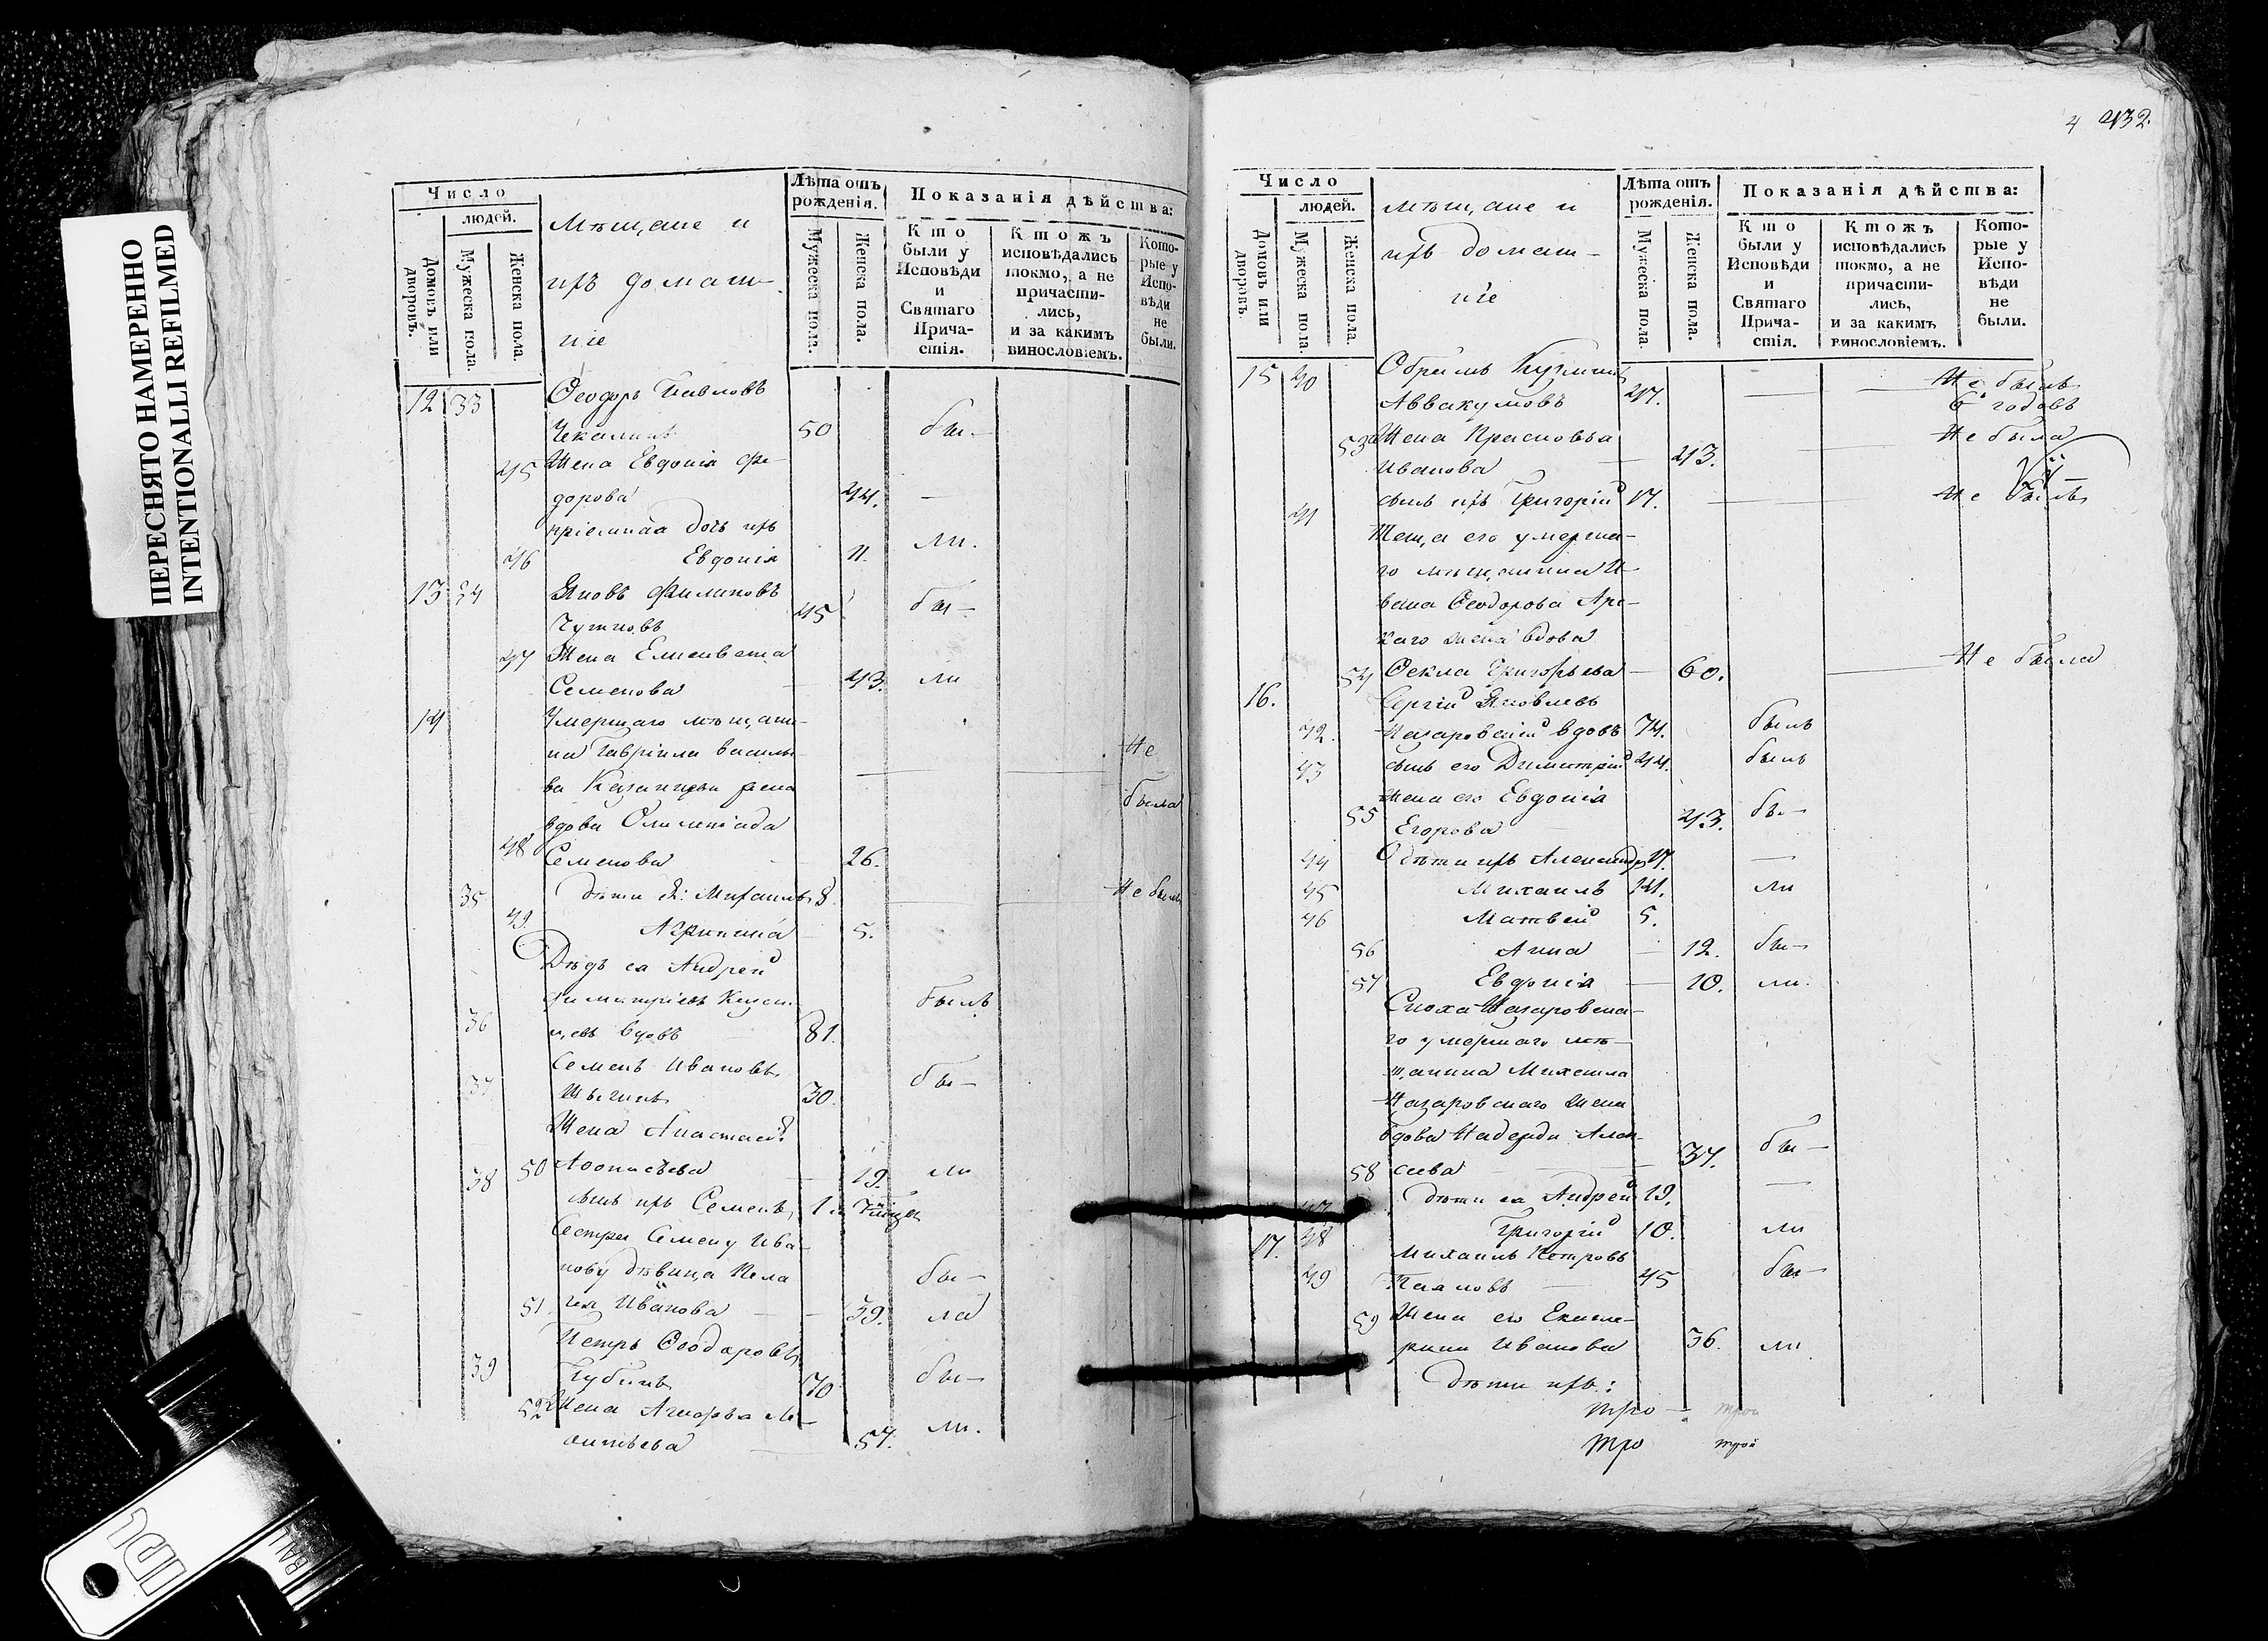 ПЕРЕСНЯТО НАМЕРЕННО
INTENTIONALLI REFILMED
Число
людей.
Домовъ или дворовъ.
Мужеска пола.
Женска пола.
Мѣщане и
ихъ домаш-
ніе
Лѣта отъ рожденія.
Мужеска пола.
Женска пола.
Показанія дѣйства:
Кто были у Исповѣди и Святаго Прича- стія.
Ктожъ исповѣдались токмо, а не причасти- лись, и за какимъ винословіемъ.
Кото- рые у Испо- вѣди не были.
12 33 Ѳеодоръ Павловъ
Чекалинъ 50 бы-
45 Жена Евдокія Фе-
дорова 44. —
пріемная дочь ихъ
46 Евдокія 11. ли.
13 34 Яковъ Филиповъ
45 бы-
47 Жена Елисавета
Семенова 43. ли
14 Умершаго мѣщани-
на Гавріила Василье- Не
ва Казанцева жена была
вдова Олимпіада
48 Семенова 26.
35 дѣти ея: Михаилъ 8. Не былъ
49. Агрипина 5.
Дѣдъ ея Андрей
Димитріевъ Казан- былъ
36 цевъ вдовъ 81.
Семенъ Ивановъ бы-
37 30.
Жена Анастасія
50 Аѳонасьева 19. ли
38 сынъ ихъ Семенъ 1
Сестра Семену Ива-
нову дѣвица Пела- бы-
51 гея Иванова 39. ла
Петръ Ѳеодоровъ
39 Губинъ 70 бы-
52 Жена
57. ли.
4 432.
Число
людей.
Домовъ или дворовъ.
Мужеска пола.
Женска пола.
Мѣщане и
ихъ домаш-
ніе
Лѣта отъ рожденія.
Мужеска пола.
Женска пола.
Показанія дѣйства:
Кто были у Исповѣди и Святаго Прича- стія.
Ктожъ исповѣдались токмо, а не причасти- лись, и за какимъ винословіемъ.
Кото- рые у Испо- вѣди не были.
15 40 Не былъ
Аввакумовъ 47. 6 годовъ
53 Жена Не была
Иванова 43.
41 сынъ ихъ Григорій 17. Не былъ
Теща его умерша-
го мѣщанина И-
вана Ѳеодорова
жена вдова
54 Ѳекла Григорьева 60. Не была
16. Сергій Яковлевъ
42. Назаровскій вдовъ 74. былъ
43 сынъ его Димитрій 44. былъ
Жена его Евдокія
55 Егорова 43. бы-
44 дѣти ихъ Александръ 17. —
45 Михаилъ 14. ли
46 Матвей 5.
56 Анна 12. бы-
57 Евдокія 10. ли.
Сноха Назаровска-
го умершаго мѣ-
щанина Михаила
Назаровскаго жена
вдова Надежда Алек-
58 сеева 37. бы-
47 дѣти ея Андрей 19. —
48 Григорій 10. ли
17. Михаилъ Петровъ
49 45 бы-
59 Жена его Екате-
рина Иванова 36. ли
дѣти ихъ:
тро
тро трои